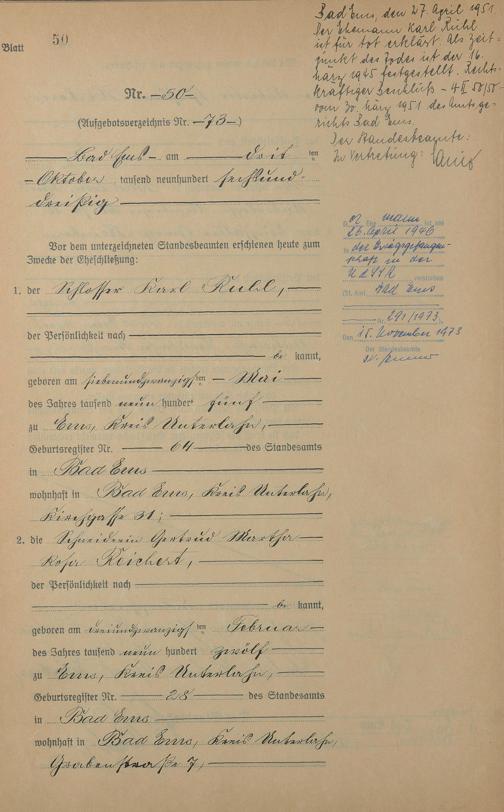 Blatt 50
Nr. 50
(Aufgebotsverzeichnis Nr. 73)
Bad Ems am drit ten
Oktober tausend neunhundert sechsund-
dreißig
Vor dem unterzeichneten Standesbeamten erschienen heute zum
Zwecke der Eheschließung:
1. der Schlosser Karl Ruhl,
der Persönlichkeit nach
be kannt,
geboren am siebenundzwanzigs ten Mai
des Jahres tausend neun hundert fünf
zu Ems, Kreis Unterlahn,
Geburtsregister Nr. 64 des Standesamts
in Bad Ems
wohnhaft in Bad Ems, Kreis Unterlahn,
Kirchgasse 31;
2. die Schneiderin Gertrud Martha
Rosa Reichert,
der Persönlichkeit nach
be kannt,
geboren am dreiundzwanzigs ten Februar
des Jahres tausend neun hundert zwölf
zu Ems, Kreis Unterlahn,
Geburtsregister Nr. 28 des Standesamts
in Bad Ems
wohnhaft in Bad Ems, Kreis Unterlahn,
Grabenstraße 7,
Bad Ems, den 27. April 1951
Der Ehemann Karl Ruhl
ist für tot erklärt. Als Zeit-
punkt des Todes ist der 16.
März 1945 festgestellt. Rechts-
kräftiger Beschluß - 4 II 50/50 -
vom 30. März 1951 des Amtsge-
richts Bad Ems.
Der Standesbeamte:
In Vertretung:
Ehemann ist am
26. April 1946
in der Kriegsgefangen-
schaft in der
UdSSR verstorben
(St. Amt Bad Ems
Nr. 291/1973)
Den 15. November 1973
Der Standesbeamte